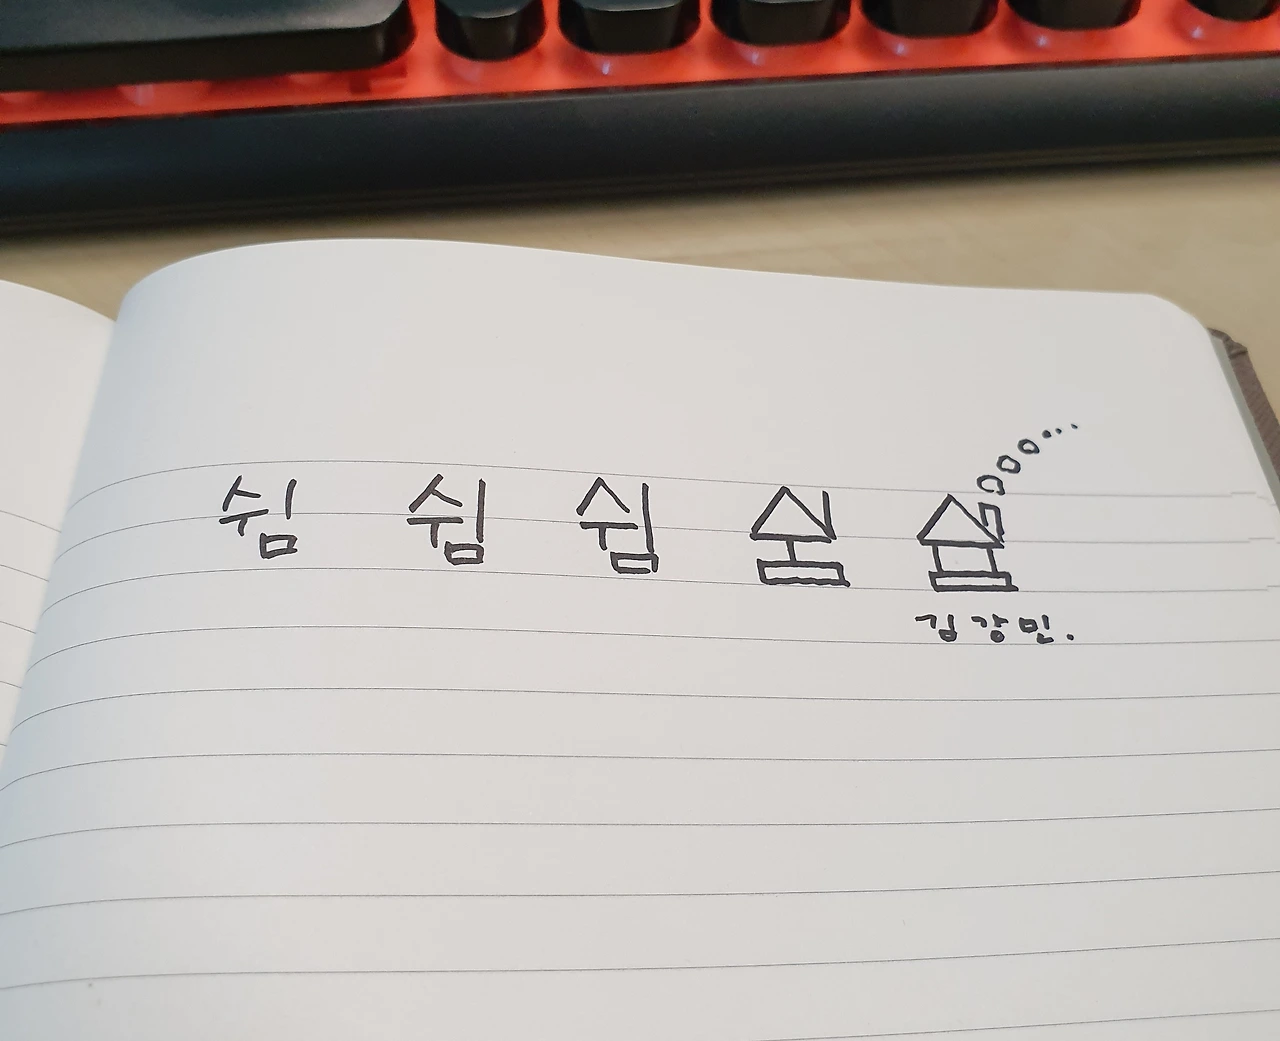 쉼 쉼 쉼 쉼
김강민.